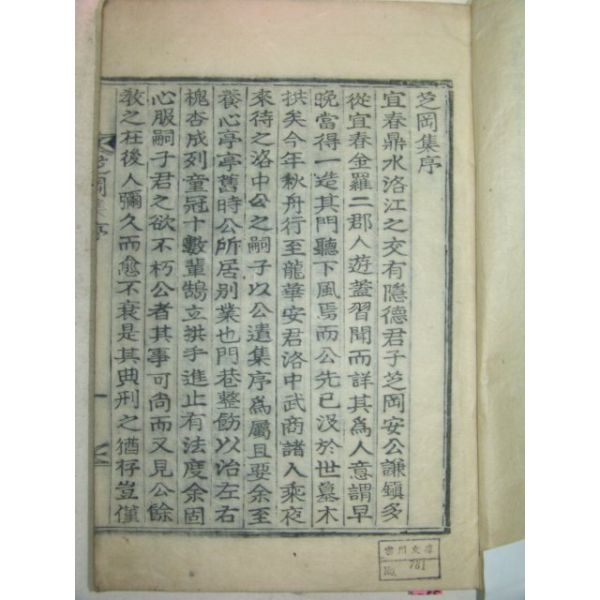 芝岡集序
宜春鼎水洛江之交有隱德君子芝岡安公謙鎭多
從宜春金羅二郡人遊蓋習聞而詳其爲人意謂早
晩當得一造其門聽下風焉而公先已沒於世墓木
拱矣今年秋舟行至龍華安君洛中武商諸人乘夜
來待之洛中公之嗣子以公遺集序爲屬且要余至
養心亭亭舊時公所居別業也門巷整飭以治左右
槐杏成列童冠十數輩鵠立拱手進止有法度余固
心服嗣子君之欲不朽公者其事可尙而又見公餘
敎之在後人彌久而愈不衰是其典刑之猶存豈僅
芝岡集序
一
文庫
No. 781